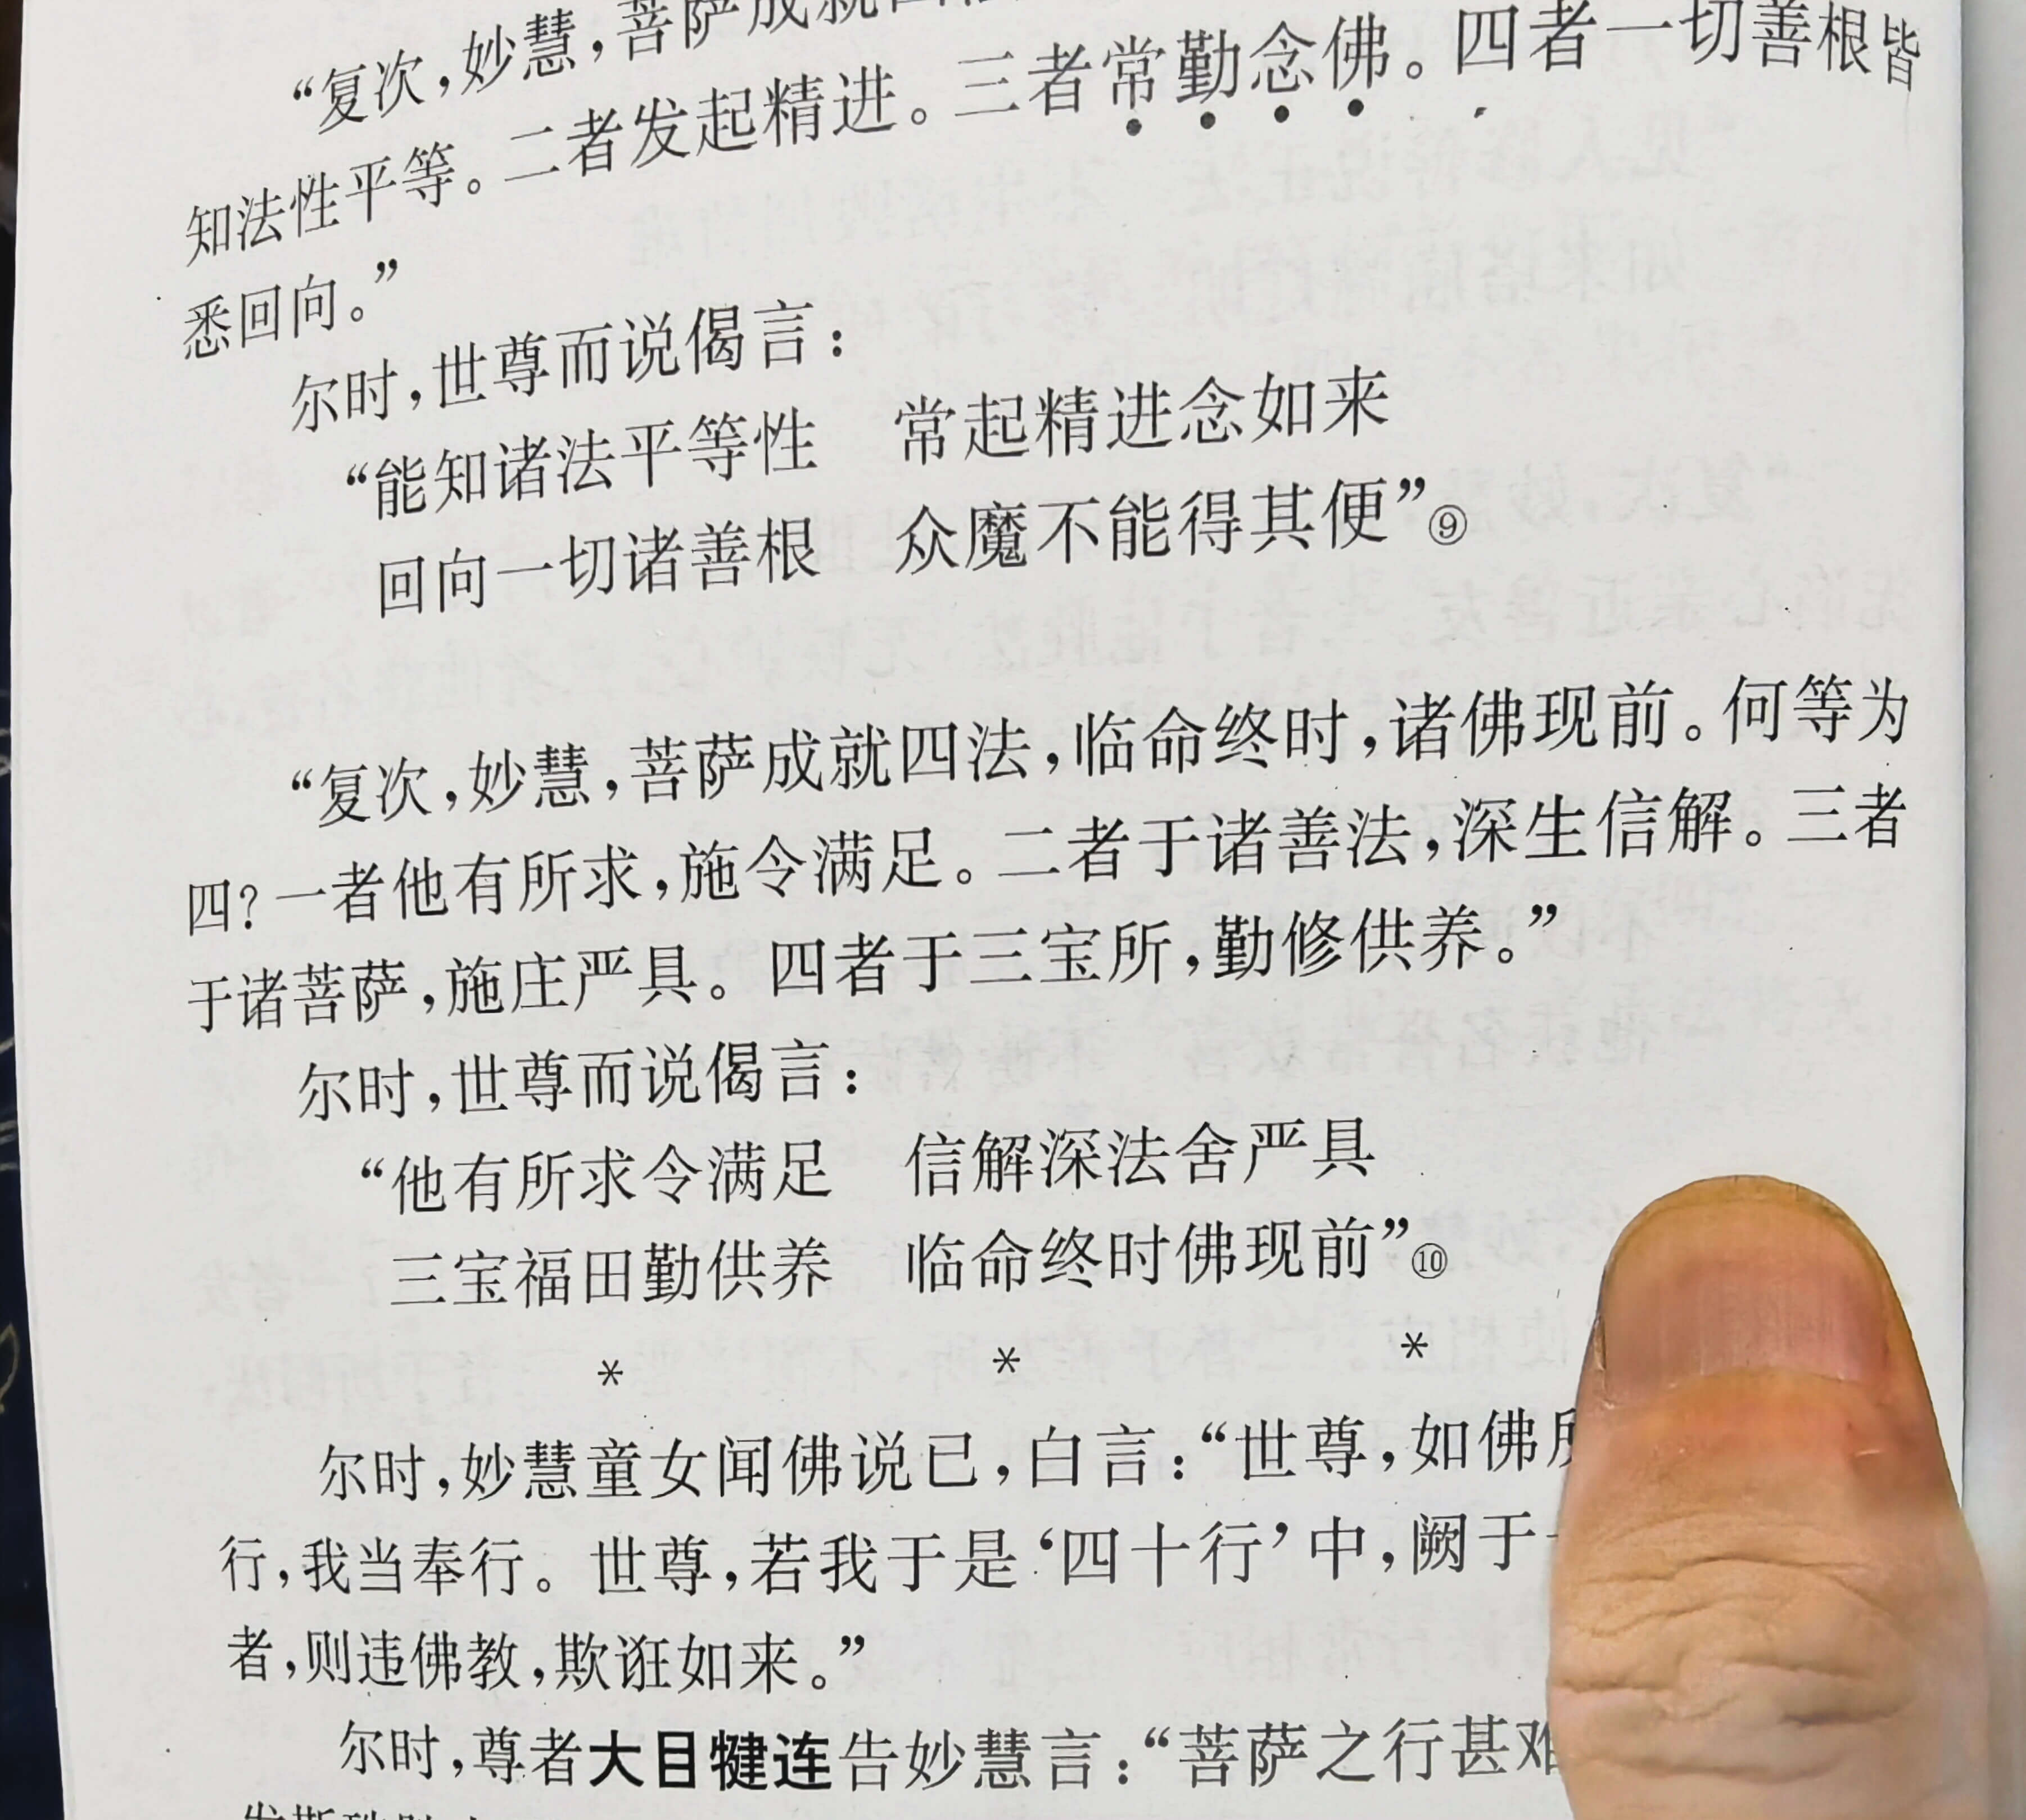 “复次，妙慧，菩萨成就四
知法性平等。二者发起精进。三者常勤念佛。四者一切善根皆
悉回向。”
尔时，世尊而说偈言：
“能知诸法平等性　常起精进念如来
回向一切诸善根　众魔不能得其便”⑨
“复次，妙慧，菩萨成就四法，临命终时，诸佛现前。何等为
四？一者他有所求，施令满足。二者于诸善法，深生信解。三者
于诸菩萨，施庄严具。四者于三宝所，勤修供养。”
尔时，世尊而说偈言：
“他有所求令满足　信解深法舍严具
三宝福田勤供养　临命终时佛现前”⑩
* * *
尔时，妙慧童女闻佛说已，白言：“世尊，如佛
行，我当奉行。世尊，若我于是‘四十行’中，阙于
者，则违佛教，欺诳如来。”
尔时，尊者大目犍连告妙慧言：“菩萨之行甚难